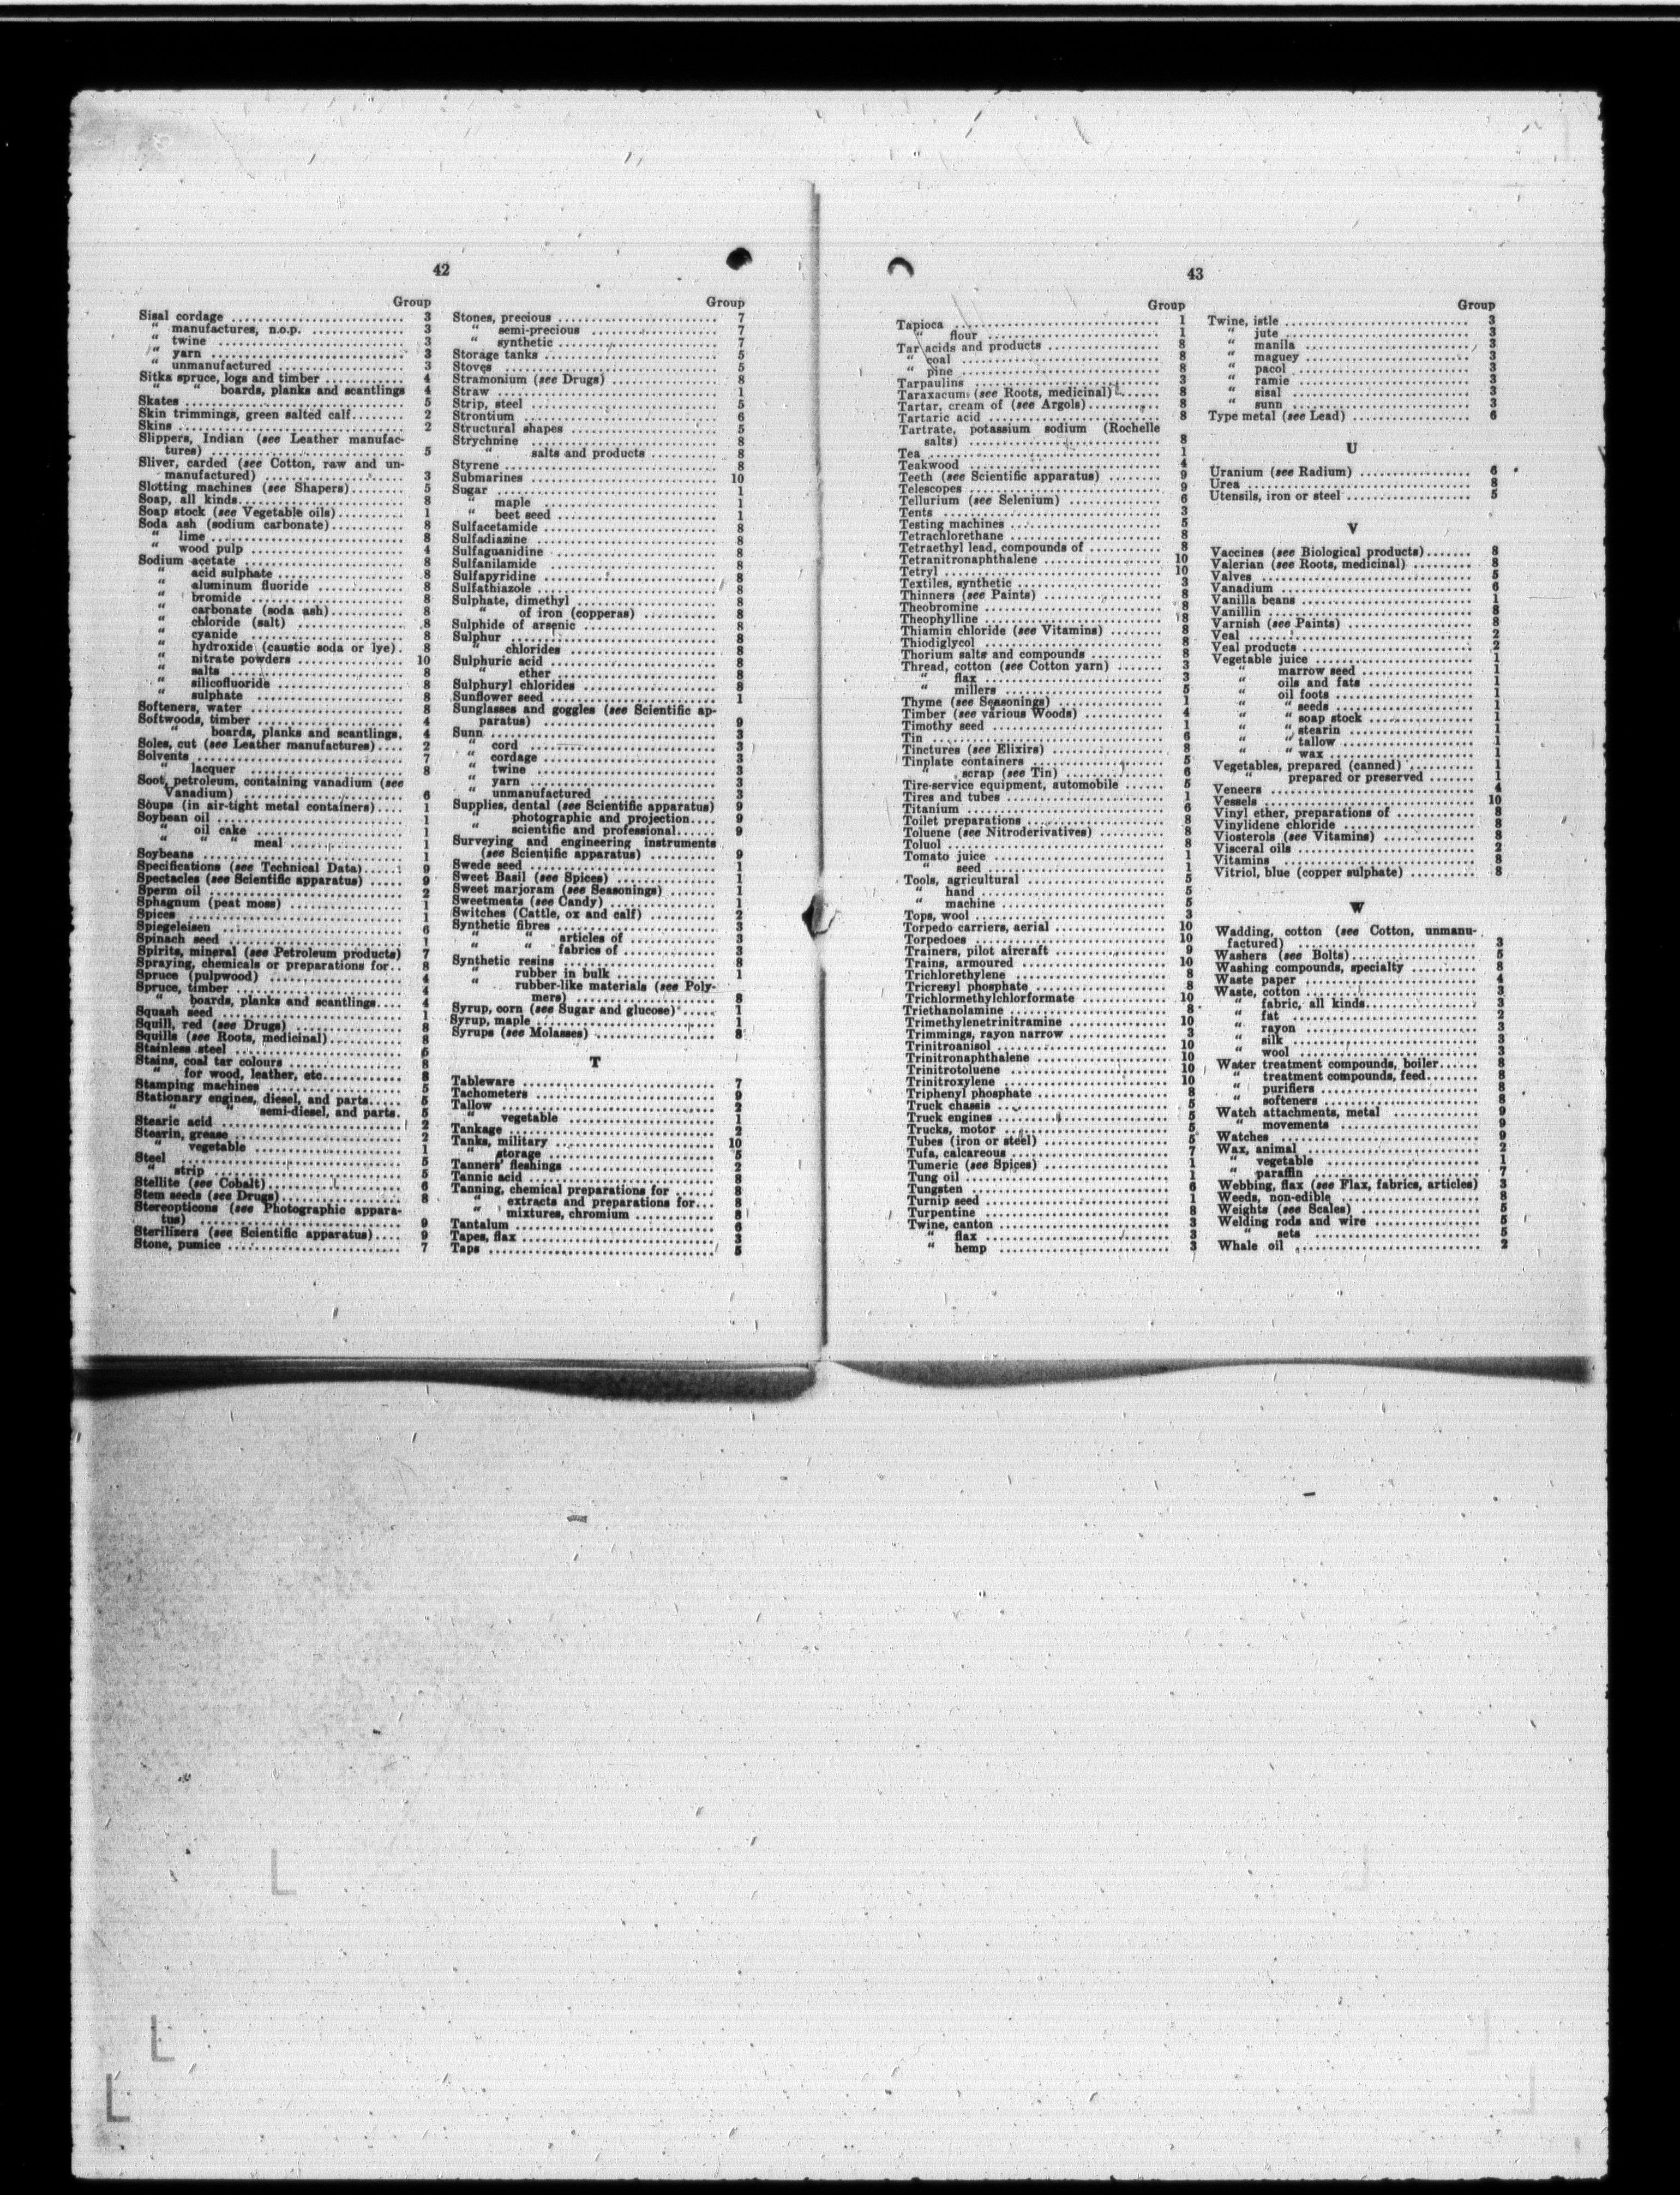 42
Group
Sisal cordage ........ 3
“ manufactures, n.o.p. ........ 3
“ twine ........ 3
“ yarn ........ 3
“ unmanufactured ........ 3
Sitka spruce, logs and timber ........ 4
“ “ boards, planks and scantlings 4
Skates ........ 5
Skin trimmings, green salted calf ........ 2
Skins ........ 2
Slippers, Indian (see Leather manufac-
tures) ........ 5
Sliver, carded (see Cotton, raw and un-
manufactured) ........ 3
Slotting machines (see Shapers) ........ 5
Soap, all kinds ........ 8
Soap stock (see Vegetable oils) ........ 1
Soda ash (sodium carbonate) ........ 8
“ lime ........ 8
“ wood pulp ........ 4
Sodium acetate ........ 8
“ acid sulphate ........ 8
“ aluminum fluoride ........ 8
“ bromide ........ 8
“ carbonate (soda ash) ........ 8
“ chloride (salt) ........ 8
“ cyanide ........ 8
“ hydroxide (caustic soda or lye). 8
“ nitrate powders ........ 10
“ salts ........ 8
“ silicofluoride ........ 8
“ sulphate ........ 8
Softeners, water ........ 8
Softwoods, timber ........ 4
“ boards, planks and scantlings. 4
Soles, cut (see Leather manufactures) .... 2
Solvents ........ 7
“ lacquer ........ 8
Soot, petroleum, containing vanadium (see
Vanadium) ........ 6
Soups (in air-tight metal containers) .... 1
Soybean oil ........ 1
“ oil cake ........ 1
“ “ meal ........ 1
Soybeans ........ 1
Specifications (see Technical Data) ...... 9
Spectacles (see Scientific apparatus) ..... 9
Sperm oil ........ 2
Sphagnum (peat moss) ........ 1
Spices ........ 1
Spiegeleisen ........ 6
Spinach seed ........ 1
Spirits, mineral (see Petroleum products) 7
Spraying, chemicals or preparations for.. 8
Spruce (pulpwood) ........ 4
Spruce, timber ........ 4
“ boards, planks and scantlings.... 4
Squash seed ........ 1
Squill, red (see Drugs) ........ 8
Squills (see Roots, medicinal) ........ 8
Stainless steel ........ 5
Stains, coal tar colours ........ 8
“ for wood, leather, etc. ........ 8
Stamping machines ........ 5
Stationary engines, diesel, and parts..... 5
“ “ semi-diesel, and parts. 5
Stearic acid ........ 2
Stearin, grease ........ 2
“ vegetable ........ 1
Steel ........ 5
“ strip ........ 5
Stellite (see Cobalt) ........ 6
Stem seeds (see Drugs) ........ 8
Stereopticons (see Photographic appara-
tus) ........ 9
Sterilizers (see Scientific apparatus) .... 9
Stone, pumice ........ 7
Group
Stones, precious ........ 7
“ semi-precious ........ 7
“ synthetic ........ 7
Storage tanks ........ 5
Stoves ........ 5
Stramonium (see Drugs) ........ 8
Straw ........ 1
Strip, steel ........ 5
Strontium ........ 6
Structural shapes ........ 5
Strychnine ........ 8
“ salts and products ........ 8
Styrene ........ 8
Submarines ........ 10
Sugar ........ 1
“ maple ........ 1
“ beet seed ........ 1
Sulfacetamide ........ 8
Sulfadiazine ........ 8
Sulfaguanidine ........ 8
Sulfanilamide ........ 8
Sulfapyridine ........ 8
Sulfathiazole ........ 8
Sulphate, dimethyl ........ 8
“ of iron (copperas) ........ 8
Sulphide of arsenic ........ 8
Sulphur ........ 8
“ chlorides ........ 8
Sulphuric acid ........ 8
“ ether ........ 8
Sulphuryl chlorides ........ 8
Sunflower seed ........ 1
Sunglasses and goggles (see Scientific ap-
paratus) ........ 9
Sunn ........ 3
“ cord ........ 3
“ cordage ........ 3
“ twine ........ 3
“ yarn ........ 3
“ unmanufactured ........ 3
Supplies, dental (see Scientific apparatus) 9
“ photographic and projection.... 9
“ scientific and professional...... 9
Surveying and engineering instruments
(see Scientific apparatus) ........ 9
Swede seed ........ 1
Sweet Basil (see Spices) ........ 1
Sweet marjoram (see Seasonings) ........ 1
Sweetmeats (see Candy) ........ 1
Switches (Cattle, ox and calf) ........ 2
Synthetic fibres ........ 3
“ “ articles of ........ 3
“ “ fabrics of ........ 3
Synthetic resins ........ 8
“ rubber in bulk ........ 1
“ rubber-like materials (see Poly-
mers) ........ 8
Syrup, corn (see Sugar and glucose) ..... 1
Syrup, maple ........ 1
Syrups (see Molasses) ........ 8
T
Tableware ........ 7
Tachometers ........ 9
Tallow ........ 2
“ vegetable ........ 1
Tankage ........ 2
Tanks, military ........ 10
“ storage ........ 5
Tanners' fleshings ........ 2
Tannic acid ........ 8
Tanning, chemical preparations for ...... 8
“ extracts and preparations for... 8
“ mixtures, chromium ........ 8
Tantalum ........ 6
Tapes, flax ........ 3
Taps ........ 5
43
Group
Tapioca ........ 1
“ flour ........ 1
Tar acids and products ........ 8
“ coal ........ 8
“ pine ........ 8
Tarpaulins ........ 3
Taraxacum (see Roots, medicinal) ........ 8
Tartar, cream of (see Argols) ........ 8
Tartaric acid ........ 8
Tartrate, potassium sodium (Rochelle
salts) ........ 8
Tea ........ 1
Teakwood ........ 4
Teeth (see Scientific apparatus) ........ 9
Telescopes ........ 9
Tellurium (see Selenium) ........ 6
Tents ........ 3
Testing machines ........ 5
Tetrachlorethane ........ 8
Tetraethyl lead, compounds of ........ 8
Tetranitronaphthalene ........ 10
Tetryl ........ 10
Textiles, synthetic ........ 3
Thinners (see Paints) ........ 8
Theobromine ........ 8
Theophylline ........ 8
Thiamin chloride (see Vitamins) ........ 8
Thiodiglycol ........ 8
Thorium salts and compounds ........ 8
Thread, cotton (see Cotton yarn) ....... 3
“ flax ........ 3
“ millers ........ 5
Thyme (see Seasonings) ........ 1
Timber (see various Woods) ........ 4
Timothy seed ........ 1
Tin ........ 6
Tinctures (see Elixirs) ........ 8
Tinplate containers ........ 5
“ scrap (see Tin) ........ 6
Tire-service equipment, automobile ...... 5
Tires and tubes ........ 1
Titanium ........ 6
Toilet preparations ........ 8
Toluene (see Nitroderivatives) ........ 8
Toluol ........ 8
Tomato juice ........ 1
“ seed ........ 1
Tools, agricultural ........ 5
“ hand ........ 5
“ machine ........ 5
Tops, wool ........ 3
Torpedo carriers, aerial ........ 10
Torpedoes ........ 10
Trainers, pilot aircraft ........ 9
Trains, armoured ........ 10
Trichlorethylene ........ 8
Tricresyl phosphate ........ 8
Trichlormethylchlorformate ........ 10
Triethanolamine ........ 8
Trimethylenetrinitramine ........ 10
Trimmings, rayon narrow ........ 3
Trinitroanisol ........ 10
Trinitronaphthalene ........ 10
Trinitrotoluene ........ 10
Trinitroxylene ........ 10
Triphenyl phosphate ........ 8
Truck chassis ........ 5
Truck engines ........ 5
Trucks, motor ........ 5
Tubes (iron or steel) ........ 5
Tufa, calcareous ........ 7
Tumeric (see Spices) ........ 1
Tung oil ........ 1
Tungsten ........ 6
Turnip seed ........ 1
Turpentine ........ 8
Twine, canton ........ 3
“ flax ........ 3
“ hemp ........ 3
Group
Twine, istle ........ 3
“ jute ........ 3
“ manila ........ 3
“ maguey ........ 3
“ pacol ........ 3
“ ramie ........ 3
“ sisal ........ 3
“ sunn ........ 3
Type metal (see Lead) ........ 6
U
Uranium (see Radium) ........ 6
Urea ........ 8
Utensils, iron or steel ........ 5
V
Vaccines (see Biological products) ....... 8
Valerian (see Roots, medicinal) ........ 8
Valves ........ 5
Vanadium ........ 6
Vanilla beans ........ 1
Vanillin ........ 8
Varnish (see Paints) ........ 8
Veal ........ 2
Veal products ........ 2
Vegetable juice ........ 1
“ marrow seed ........ 1
“ oils and fats ........ 1
“ oil foots ........ 1
“ “ seeds ........ 1
“ “ soap stock ........ 1
“ “ stearin ........ 1
“ “ tallow ........ 1
“ “ wax ........ 1
Vegetables, prepared (canned) ........ 1
“ prepared or preserved ....... 1
Veneers ........ 4
Vessels ........ 10
Vinyl ether, preparations of ........ 8
Vinylidene chloride ........ 8
Viosterols (see Vitamins) ........ 8
Visceral oils ........ 2
Vitamins ........ 8
Vitriol, blue (copper sulphate) ........ 8
W
Wadding, cotton (see Cotton, unmanu-
factured) ........ 3
Washers (see Bolts) ........ 5
Washing compounds, specialty ........ 8
Waste paper ........ 4
Waste, cotton ........ 3
“ fabric, all kinds ........ 3
“ fat ........ 2
“ rayon ........ 3
“ silk ........ 3
“ wool ........ 3
Water treatment compounds, boiler....... 8
“ treatment compounds, feed....... 8
“ purifiers ........ 8
“ softeners ........ 8
Watch attachments, metal ........ 9
“ movements ........ 9
Watches ........ 9
Wax, animal ........ 2
“ vegetable ........ 1
“ paraffin ........ 7
Webbing, flax (see Flax, fabrics, articles) 3
Weeds, non-edible ........ 8
Weights (see Scales) ........ 5
Welding rods and wire ........ 5
“ sets ........ 5
Whale oil ........ 2